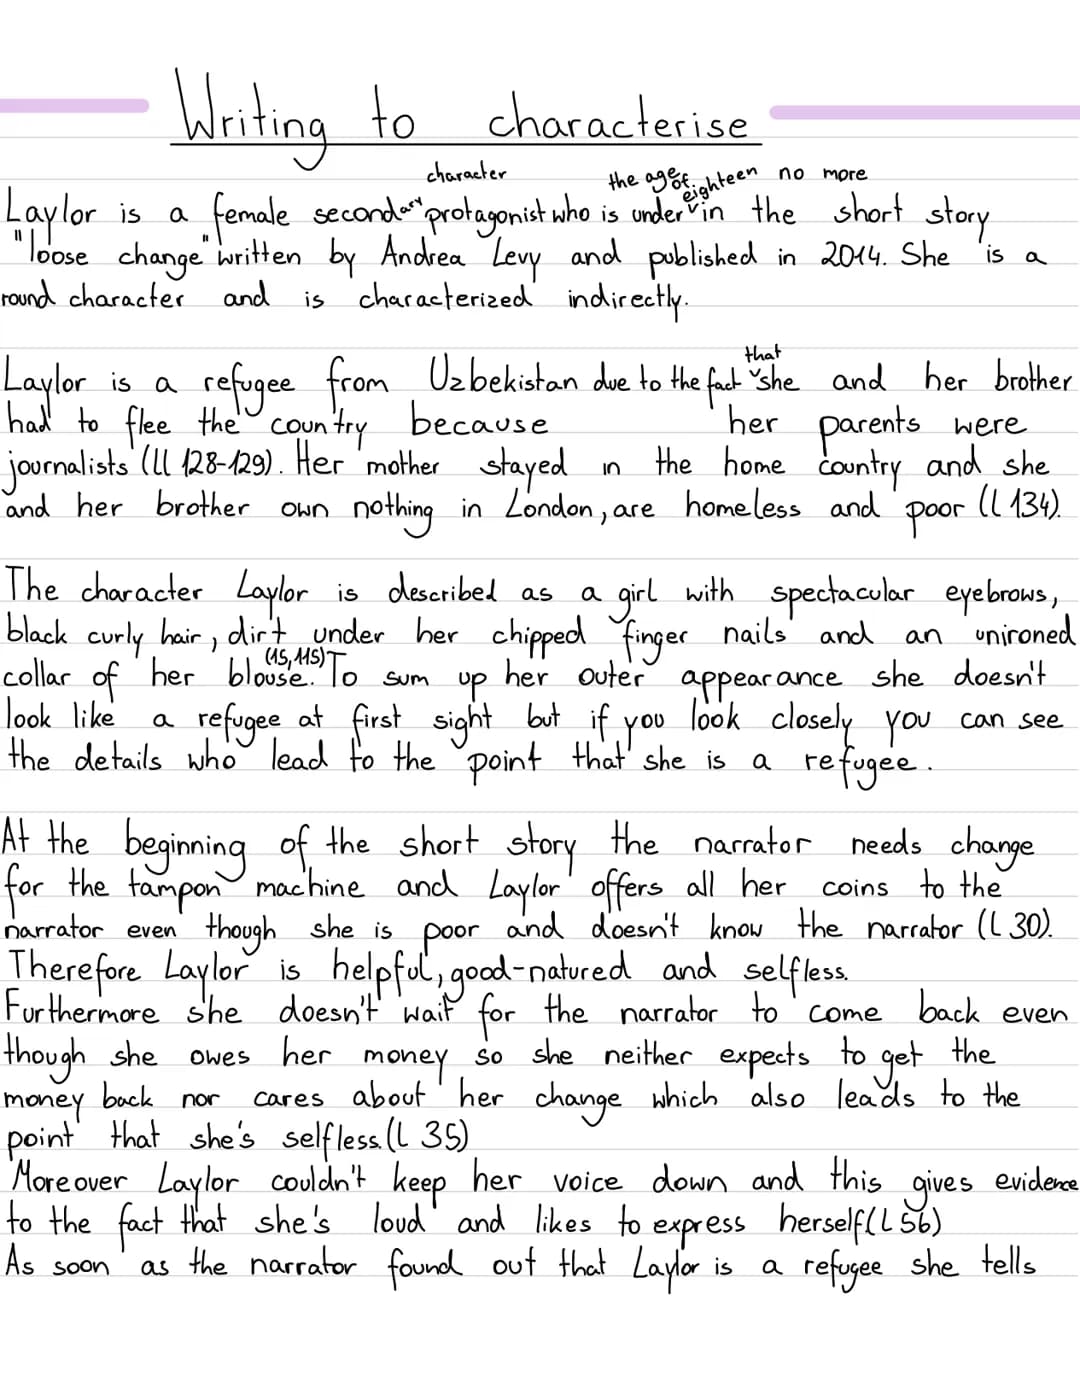 Writing to characterise
character the age of eighteen no more
Laylor is a female secondary protagonist who is under in the short story
"loose change" written by Andrea Levy and published in 2014. She is a
round character and is characterized indirectly.
that
Laylor is a refugee from Uzbekistan due to the fact she and her brother
had to flee the country because her parents were
journalists (ll 128-129). Her mother stayed in the home country and she
and her brother own nothing in London, are homeless and poor (l 134).
The character Laylor is described as a girl with spectacular eyebrows,
black curly hair, dirt under her chipped finger nails and an unironed
(45, 115)
collar of her blouse. To sum up her outer appearance she doesn't
look like a refugee at first sight but if you look closely you can see
the details who lead to the point that she is a refugee.
At the beginning of the short story the narrator needs change
for the tampon machine and Laylor offers all her coins to the
narrator even though she is poor and doesn't know the narrator (l 30).
Therefore Laylor is helpful, good-natured and selfless.
Furthermore she doesn't wait for the narrator to come back even
though she owes her money so she neither expects to get the
money back nor cares about her change which also leads to the
point that she's selfless. (l 35)
Moreover Laylor couldn't keep her voice down and this gives evidence
to the fact that she's loud and likes to express herself (l 56)
As soon as the narrator found out that Laylor is a refugee she tells